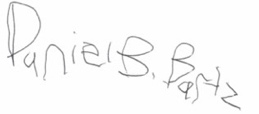 Daniel B. Bartz